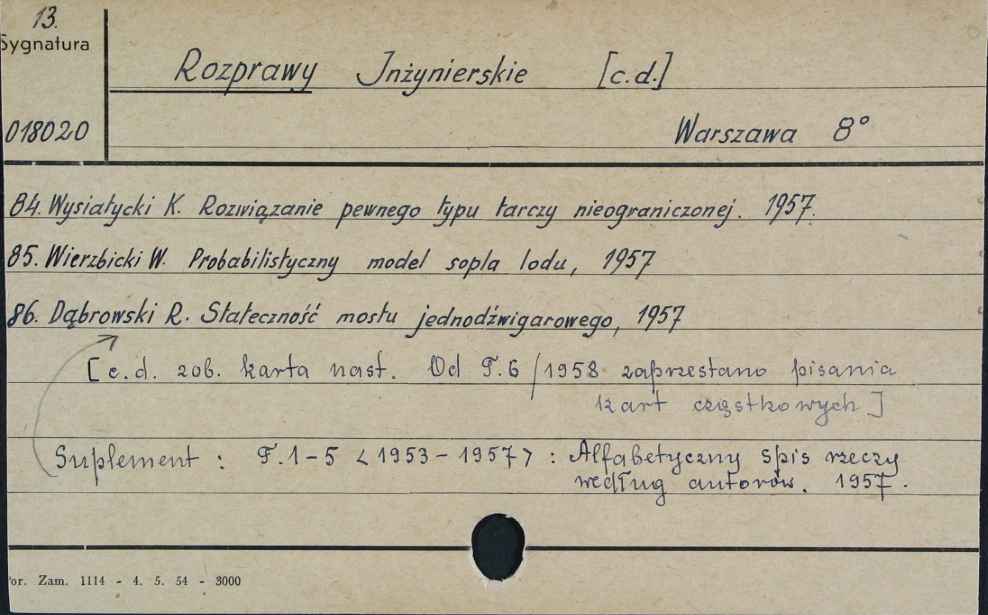 13.
Sygnatura
Rozprawy Inżynierskie [c.d.]
018020
Warszawa 8°
84. Wysiatycki K. Rozwiązanie pewnego typu tarczy nieograniczonej. 1957.
85. Wierzbicki W. Probabilistyczny model sopla lodu, 1957
86. Dąbrowski R. Stateczność mostu jednodźwigarowego, 1957
[c.d. zob. karta nast. Od T.6/1958 zaprzestano pisania
kart cząstkowych]
Suplement : T.1-5 <1953-1957> : Alfabetyczny spis rzeczy
według autorów. 1957.
or. Zam. 1114 - 4. 5. 54 - 3000